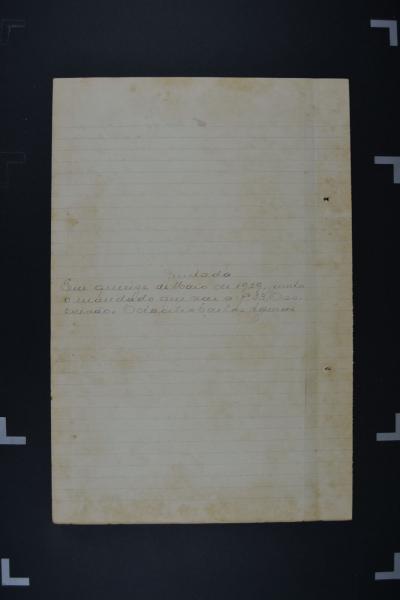 Juntada
Em quinze de Maio de 1929, junto
o mandado que vae a f 33, O es-
crivão,